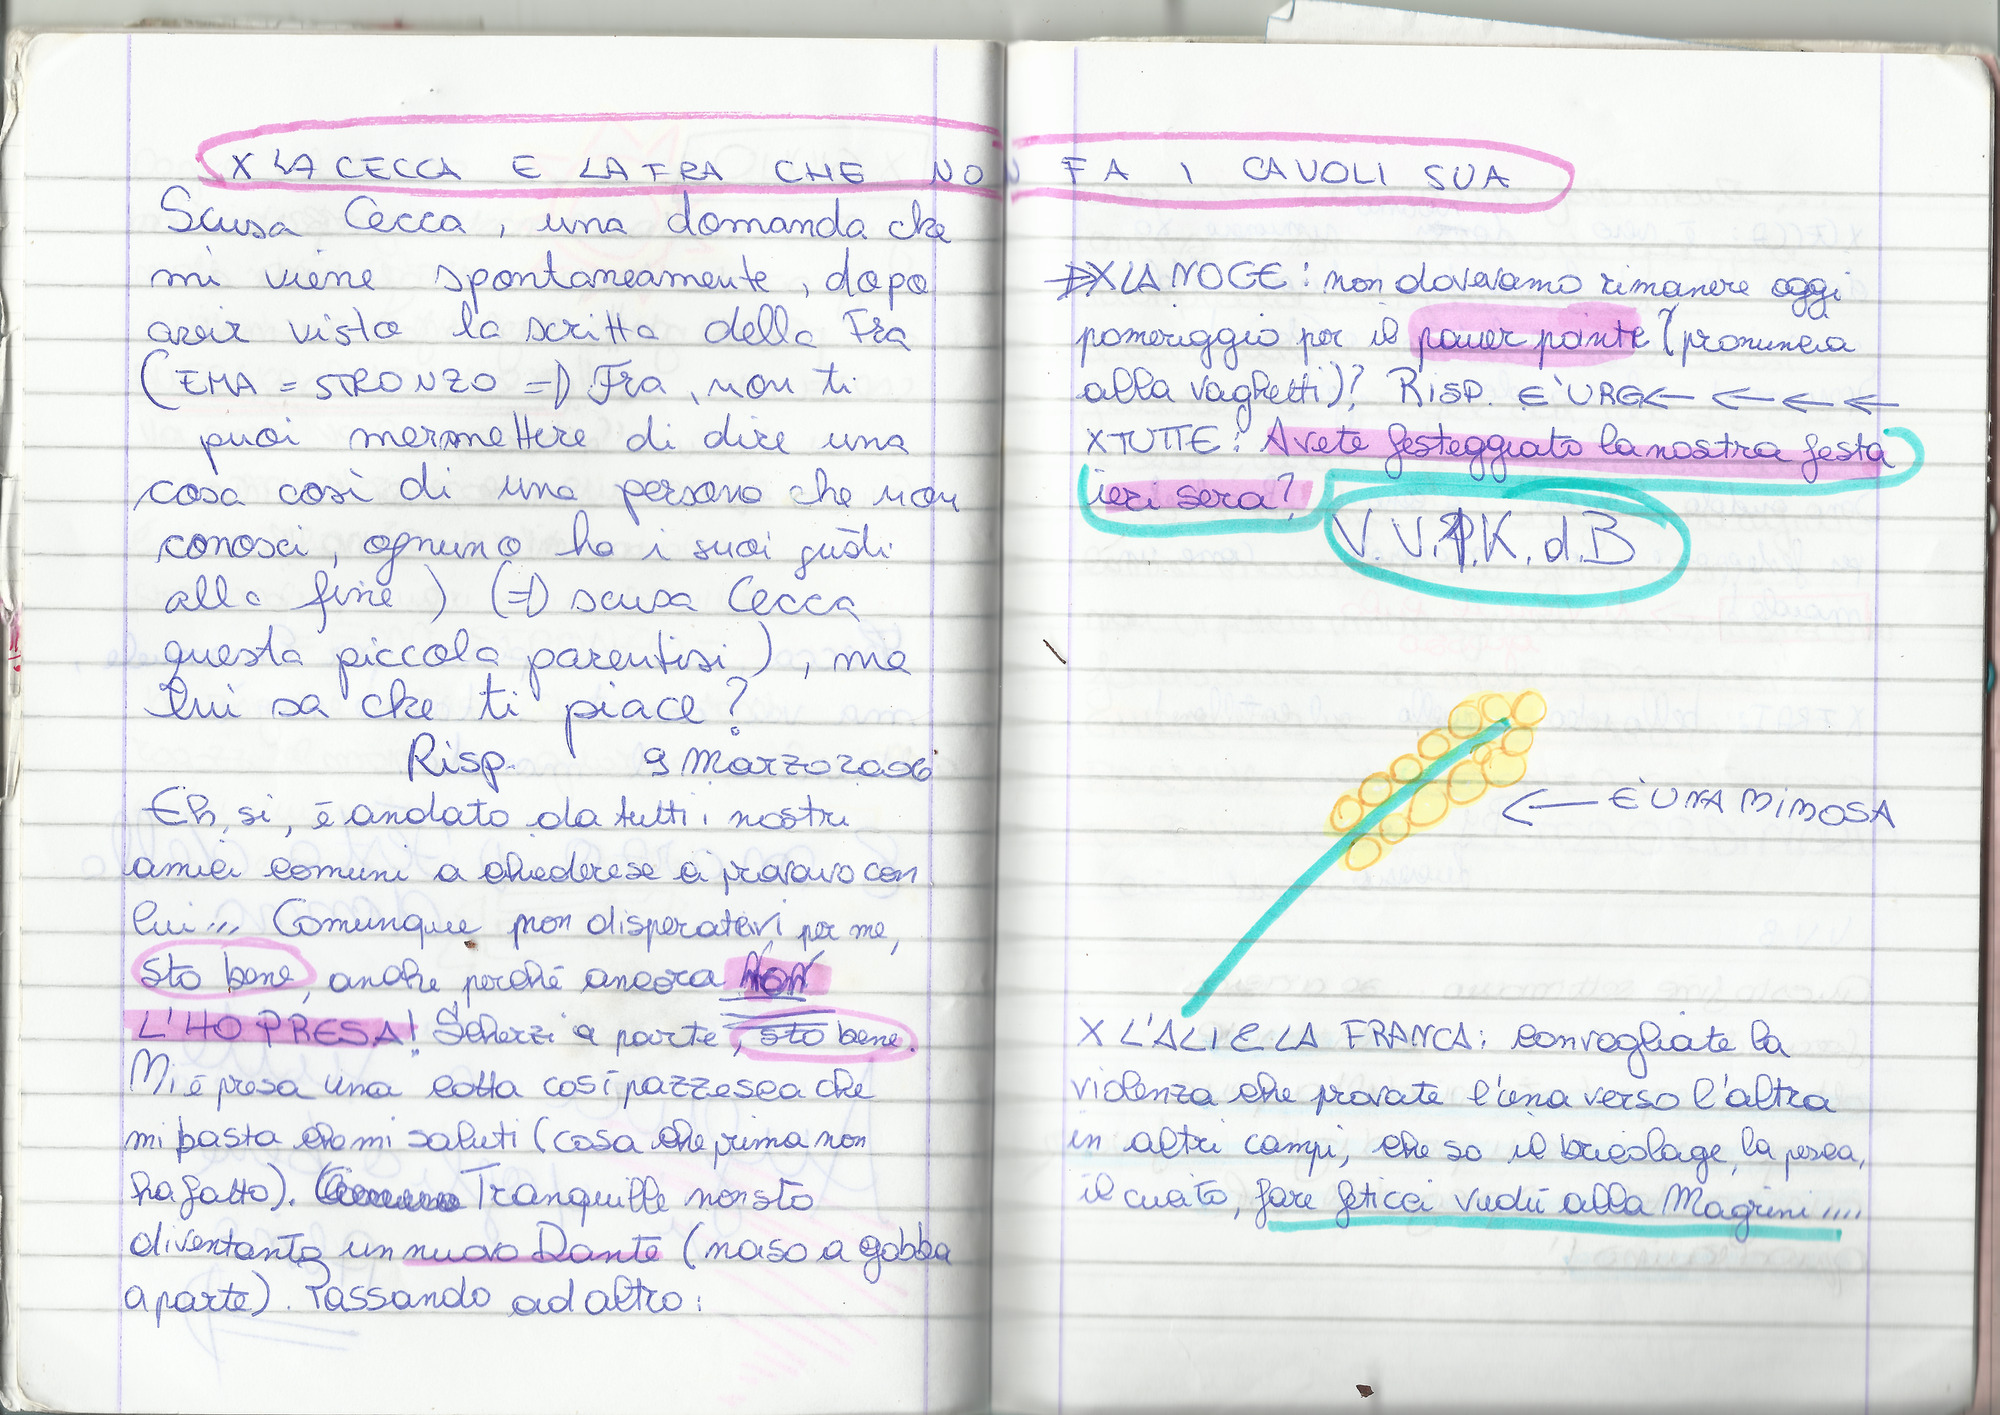 X LA CECCA E LA FRA CHE NON FA I CAVOLI SUA
Scusa Cecca, una domanda che
mi viene spontaneamente, dopo
aver visto la scritta della Fra
(EMA = STRONZO => Fra, non ti
puoi mermettere di dire una
cosa così di una persona che non
conosci, ognuno ha i suoi gusti
alla fine) (=> scusa Cecca
questa piccola parentisi), ma
lui sa che ti piace?
Risp. 9 Marzo 2006
Eh, si, è andato da tutti i nostri
amici comuni a chiederese ci provavo con
lui... Comunque non disperatevi per me,
sto bene, anche perché ancora NON
L'HO PRESA! Scherzi a parte, sto bene.
Mi è presa una cotta così pazzesca che
mi basta che mi saluti (cosa che prima non
ha fatto). Tranquille non sto
diventanto un nuovo Dante (naso a gobba
a parte). Passando ad altro:
X LA NOGE: non dovevamo rimanere oggi
pomeriggio per il pauer pointe (pronuncia
alla vaghetti)? RISP. E' URG ← ← ← ←
X TUTTE: Avete festeggiato la nostra festa
ieri sera?
V.V.1.K.d.B
← È UNA MIMOSA
X L'ALI E LA FRANCA: convogliate la
violenza che provate l'una verso l'altra
in altri campi, che so il bricolage, la pesca,
il cucito, fare feticci vudù alla Magrini....